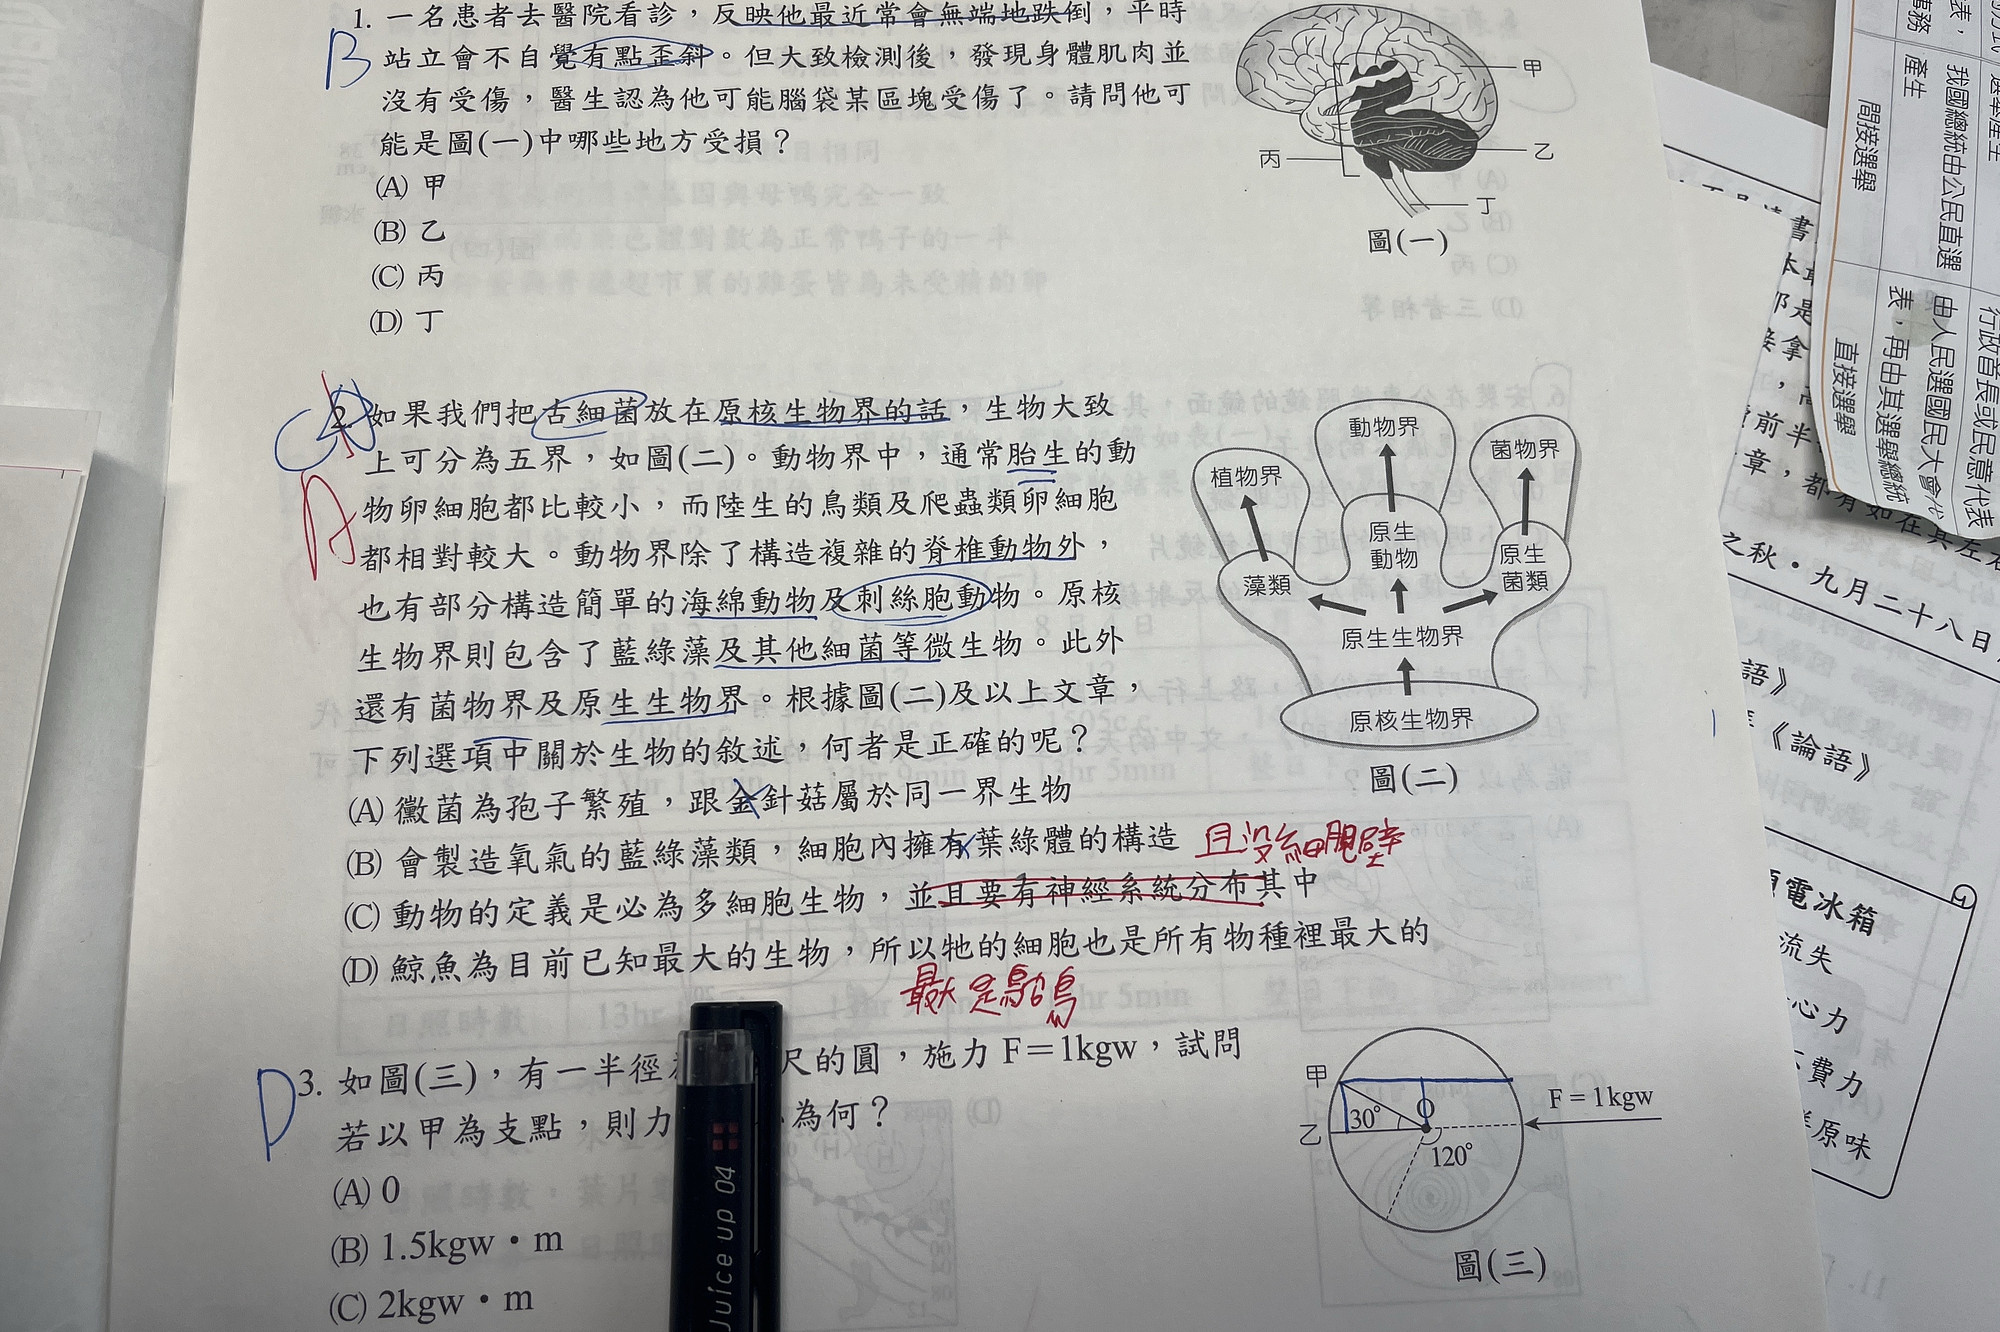 1. 一名患者去醫院看診，反映他最近常會無端地跌倒，平時
B
站立會不自覺有點歪斜。但大致檢測後，發現身體肌肉並
沒有受傷，醫生認為他可能腦袋某區塊受傷了。請問他可
能是圖(一)中哪些地方受損？
(A) 甲
(B) 乙
(C) 丙
(D) 丁
甲
乙
丙
丁
圖(一)
2. 如果我們把古細菌放在原核生物界的話，生物大致
上可分為五界，如圖(二)。動物界中，通常胎生的動
A
物卵細胞都比較小，而陸生的鳥類及爬蟲類卵細胞
都相對較大。動物界除了構造複雜的脊椎動物外，
也有部分構造簡單的海綿動物及刺絲胞動物。原核
生物界則包含了藍綠藻及其他細菌等微生物。此外
還有菌物界及原生生物界。根據圖(二)及以上文章，
下列選項中關於生物的敘述，何者是正確的呢？
(A) 黴菌為孢子繁殖，跟金針菇屬於同一界生物
(B) 會製造氧氣的藍綠藻類，細胞內擁有葉綠體的構造 且沒細胞壁
(C) 動物的定義是必為多細胞生物，並且要有神經系統分布其中
(D) 鯨魚為目前已知最大的生物，所以牠的細胞也是所有物種裡最大的
最大是鴕鳥
植物界
動物界
菌物界
藻類
原生
動物
原生
菌類
原生生物界
原核生物界
圖(二)
D
3. 如圖(三)，有一半徑 尺的圓，施力 F＝1kgw，試問
若以甲為支點，則力 為何？
(A) 0
(B) 1.5kgw・m
(C) 2kgw・m
甲
乙
30°
O
120°
F = 1kgw
圖(三)
Juice up 04
產生
我國總統由公民直選
間接選舉
行政首長或民意代表
由人民選國民大會代
表，再由其選舉總統
直接選舉
之秋・九月二十八日
語》
《論語》
電冰箱
流失
心力
費力
原味